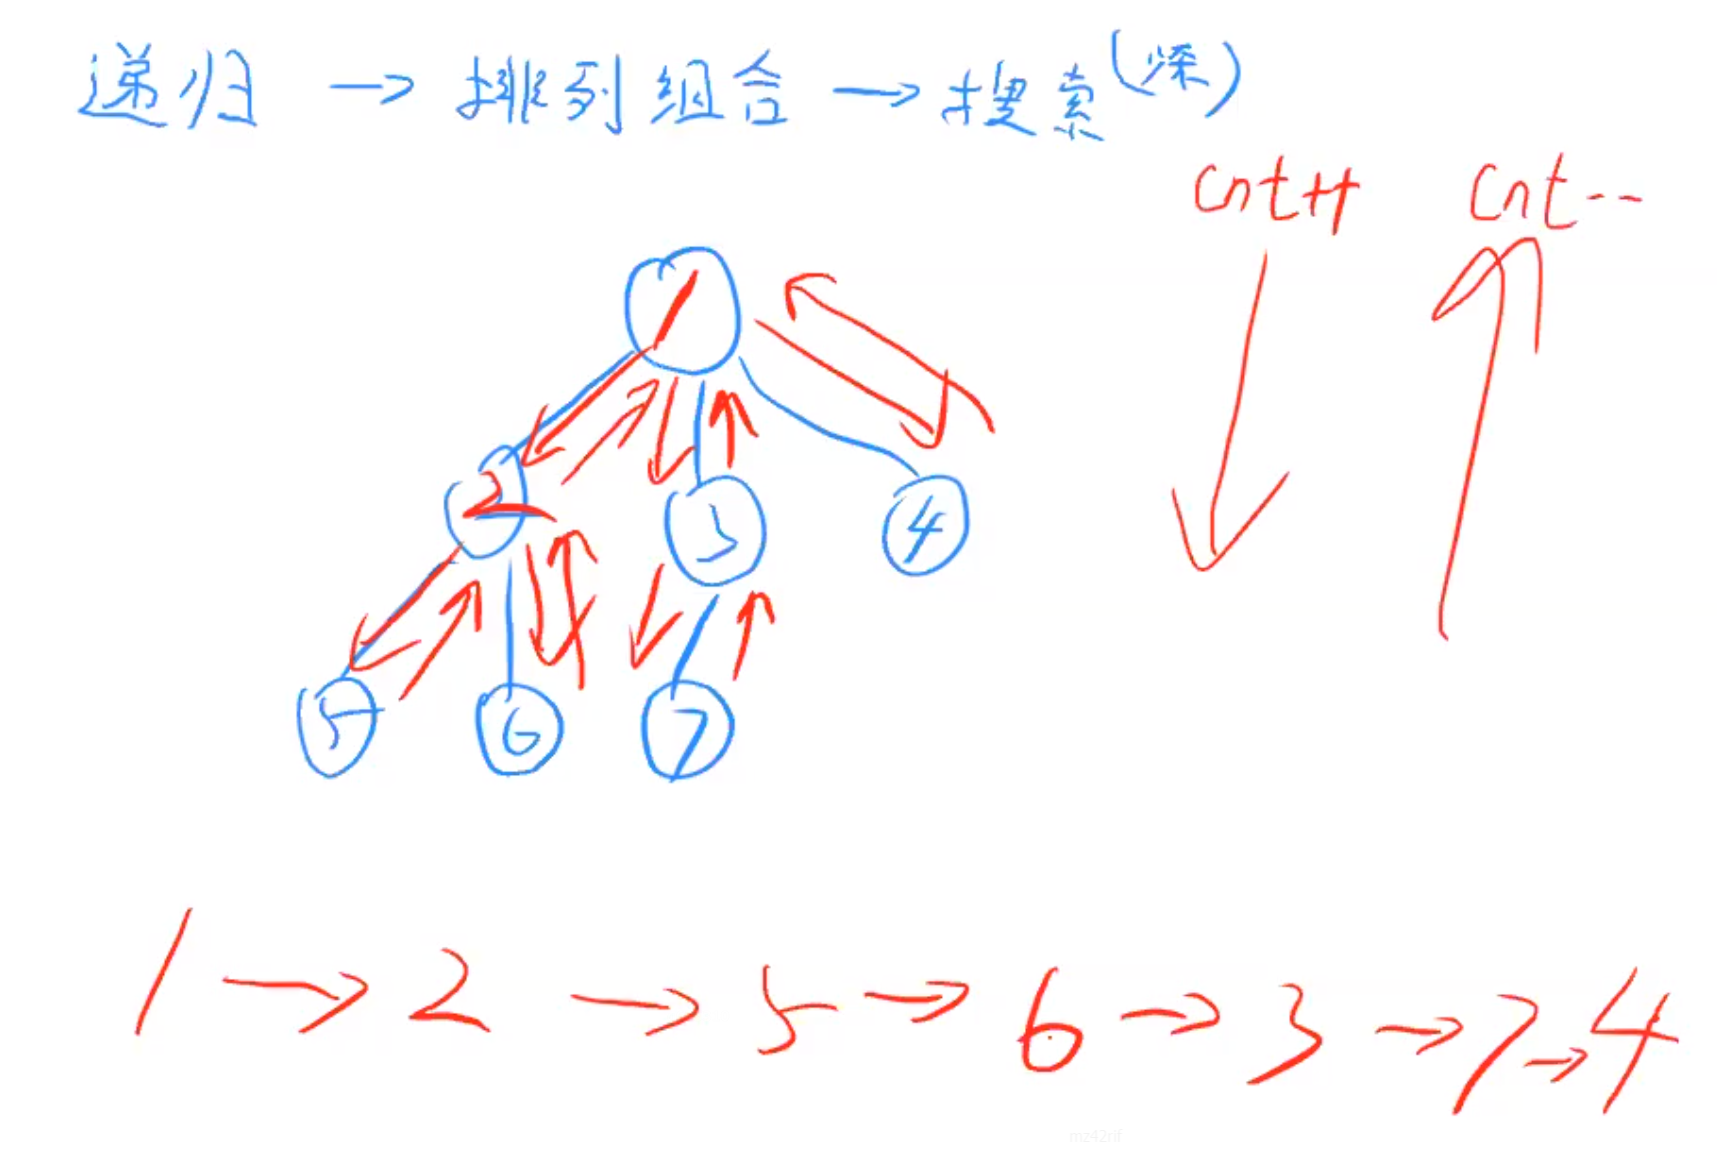 递归 → 排列组合 → 搜索(深)
cnt++ cnt--
1
2 3 4
5 6 7
1 → 2 → 5 → 6 → 3 → 7 → 4
mz42rif